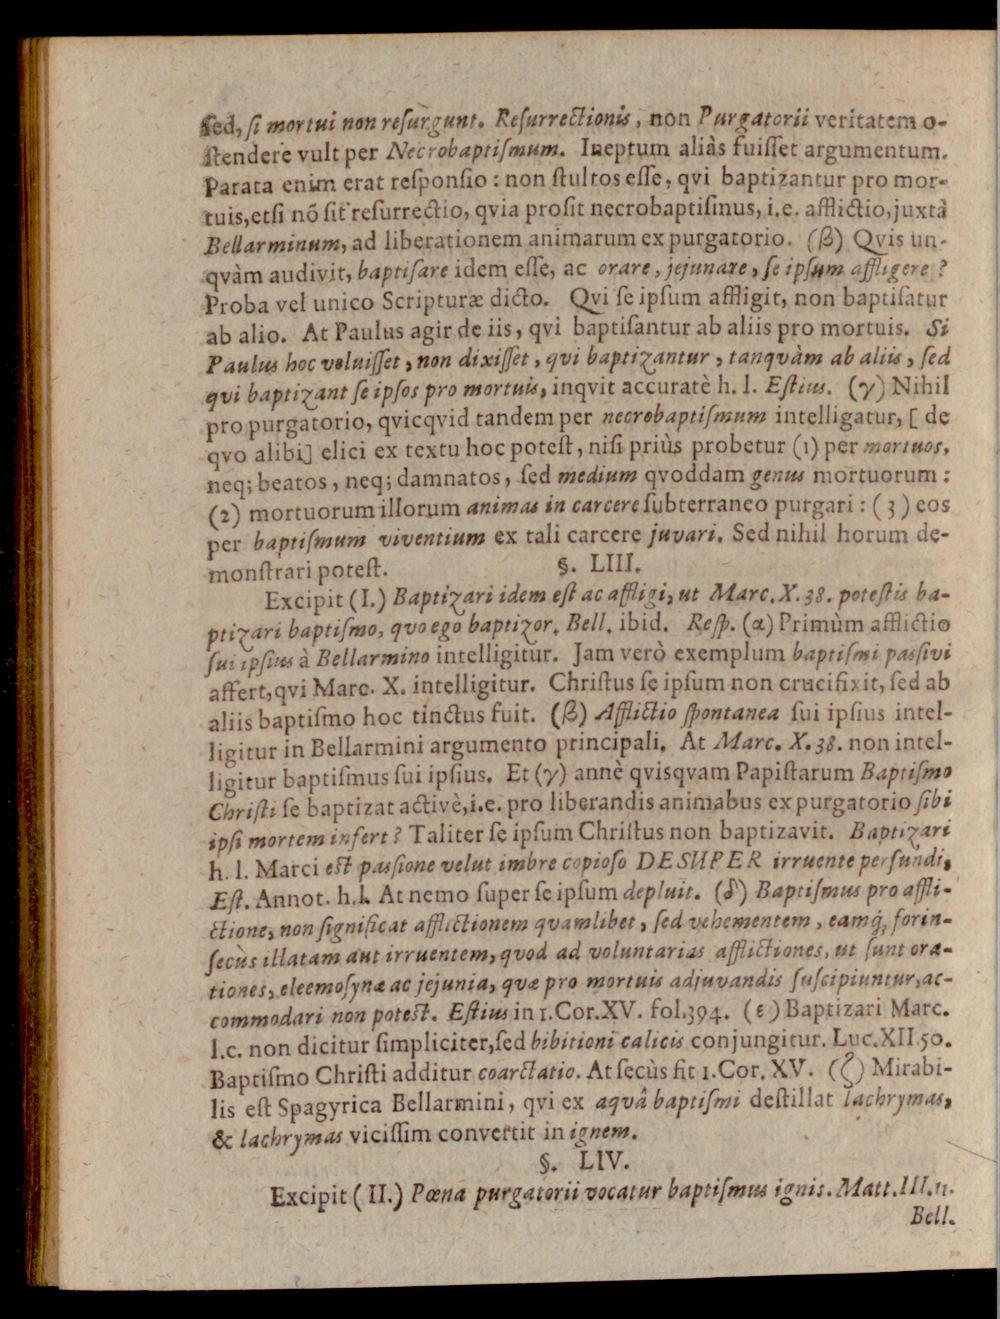 ſed, ſi mortui non reſurgunt. Reſurrectionis, non Purgatorii veritatem o-
ſtendere vult per Necrobaptiſmum. Ineptum aliàs fuiſſet argumentum.
Parata enim erat reſponſio: non ſtultos eſſe, qvi baptizantur pro mor-
tuis, etſi nõ ſit reſurrectio, qvia proſit necrobaptiſmus, i.e. afflictio, juxtà
Bellarminum, ad liberationem animarum ex purgatorio. (β) Qvis un-
qvàm audivit, baptiſare idem eſſe, ac orare, jejunare, ſe ipſum affligere?
Proba vel unico Scripturæ dicto. Qvi ſe ipſum affligit, non baptiſatur
ab alio. At Paulus agit de iis, qvi baptiſantur ab aliis pro mortuis. Si
Paulus hoc voluiſſet, non dixiſſet, qui baptizantur, tanquàm ab aliis, ſed
qvi baptizant ſe ipſos pro mortuis, inqvit accuratè h. l. Eſtius. (γ) Nihil
pro purgatorio, qvicqvid tandem per necrobaptiſmum intelligatur, [de
qvo alibi] elici ex textu hoc poteſt, niſi priùs probetur (1) per mortuos,
neq; beatos, neq; damnatos, ſed medium qvoddam genus mortuorum:
(2) mortuorum illorum animas in carcere ſubterraneo purgari: (3) eos
per baptiſmum viventium ex tali carcere juvari. Sed nihil horum de-
monſtrari poteſt.
§. LIII.
Excipit (I.) Baptizari idem eſt ac affligi, ut Marc. X. 38. poteſtis ba-
ptizari baptiſmo, quo ego baptizor. Bell. ibid. Reſp. (α) Primùm afflictio
ſui ipſius à Bellarmino intelligitur. Jam verò exemplum baptiſmi paſſivi
affert, qvi Marc. X. intelligitur. Chriſtus ſe ipſum non crucifixit, ſed ab
aliis baptiſmo hoc tinctus fuit. (β) Afflictio ſpontanea ſui ipſius intel-
ligitur in Bellarmini argumento principali. At Marc. X. 38. non intel-
ligitur baptiſmus ſui ipſius. Et (γ) annè qvisqvam Papiſtarum Baptiſmo
Chriſti ſe baptizat activè, i.e. pro liberandis animabus ex purgatorio ſibi
ipſi mortem infert? Taliter ſe ipſum Chriſtus non baptizavit. Baptizari
h. l. Marci eſt paſſione velut imbre copioſo DESUPER irruente perfundi,
Eſt. Annot. h.l. At nemo ſuper ſe ipſum depluit. (δ) Baptiſmus pro affli-
ctione, non ſignificat afflictionem quamlibet, ſed vehementem, eamq́; forin-
ſecùs illatam aut irruentem, quod ad voluntarias afflictiones, ut ſunt ora-
tiones, eleemoſynæ ac jejunia, quæ pro mortuis adjuvandis ſuſcipiuntur, ac-
commodari non poteſt. Eſtius in 1. Cor. XV. fol. 394. (ε) Baptizari Marc.
l.c. non dicitur ſimpliciter, ſed bibitioni calicis conjungitur. Luc. XII. 50.
Baptiſmo Chriſti additur coarctatio. At ſecùs fit 1. Cor. XV. (ζ) Mirabi-
lis eſt Spagyrica Bellarmini, qvi ex aquâ baptiſmi deſtillat lachrymas,
& lachrymas viciſſim convertit in ignem.
§. LIV.
Excipit (II.) Pœna purgatorii vocatur baptiſmus ignis. Matt. III. 11.
Bell.